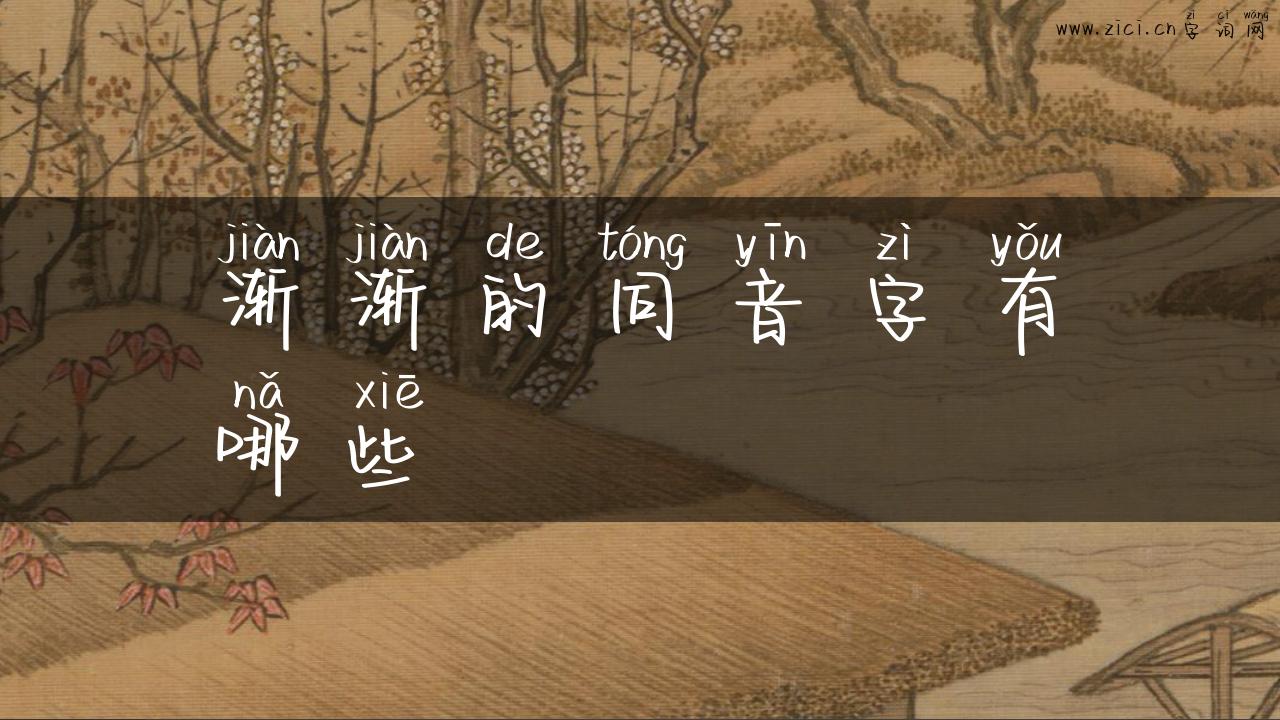 zì cí wǎng
www.zici.cn字词网
jiàn jiàn de tóng yīn zì yǒu
渐渐的同音字有
nǎ xiē
哪些